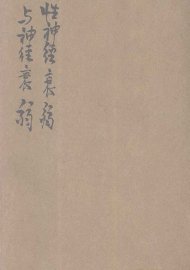 性神经衰弱
与神经衰弱